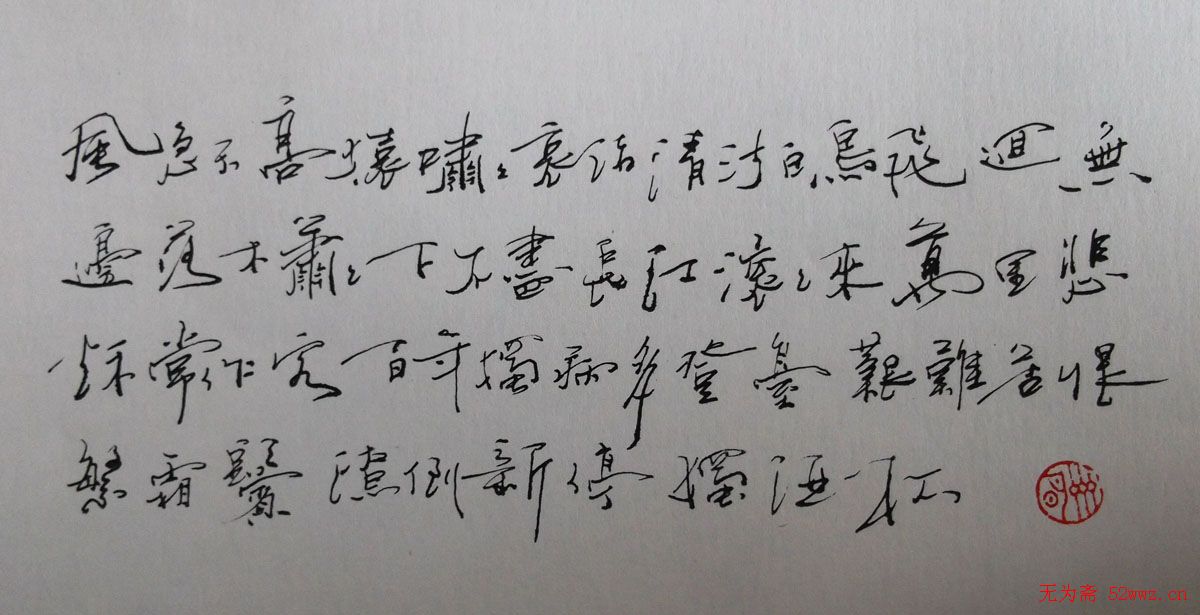 風急天高猿嘯〻哀渚清沙白鳥飛迴無
邊落木蕭〻下不盡長江滾〻來萬里悲
秋常作客百年獨病多登臺艱難苦恨
繁霜鬢潦倒新停濁酒杯
无为斋 52wwz.cn